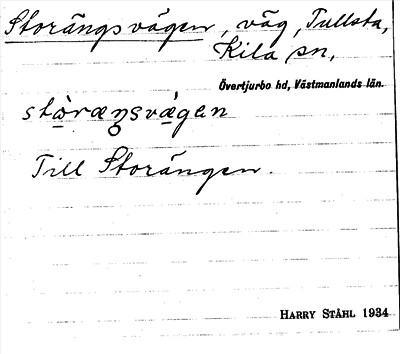 Storängsvägen, väg, Tullsta,
Kila sn,
Övertjurbo hd, Västmanlands län.
Till Storängen.
HARRY STÅHL 1934